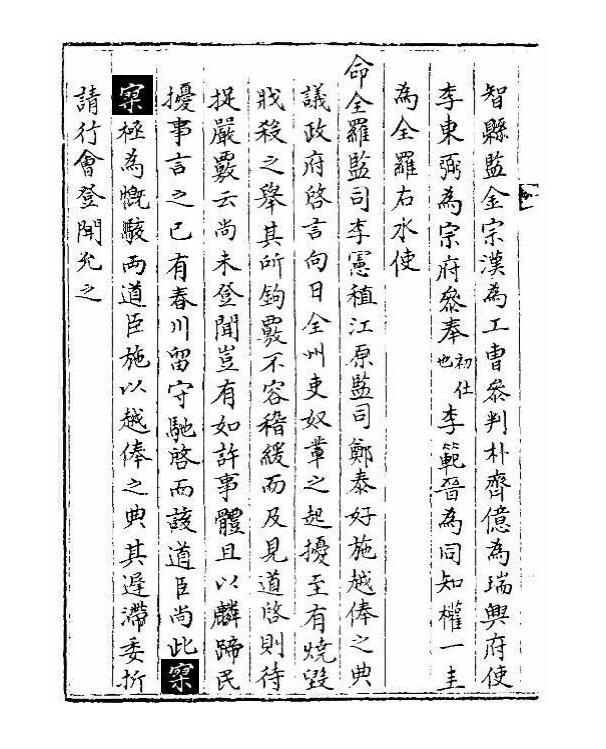 智縣監金宗漢為工曹參判朴齊億為瑞興府使
李東弼為宗府參奉初仕也李範晉為同知權一圭
為全羅右水使
命全羅監司李憲稙江原監司鄭泰好施越俸之典
議政府啓言向日全州吏奴輩之起擾至有燒毁
戕殺之擧其所鉤覈不容稽緩而及見道啓則待
捉嚴覈云尚未登聞豈有如許事體且以麟蹄民
擾事言之已有春川留守馳啓而該道臣尚此寥
寥極為慨駭兩道臣施以越俸之典其遲滯委折
請行會登聞允之